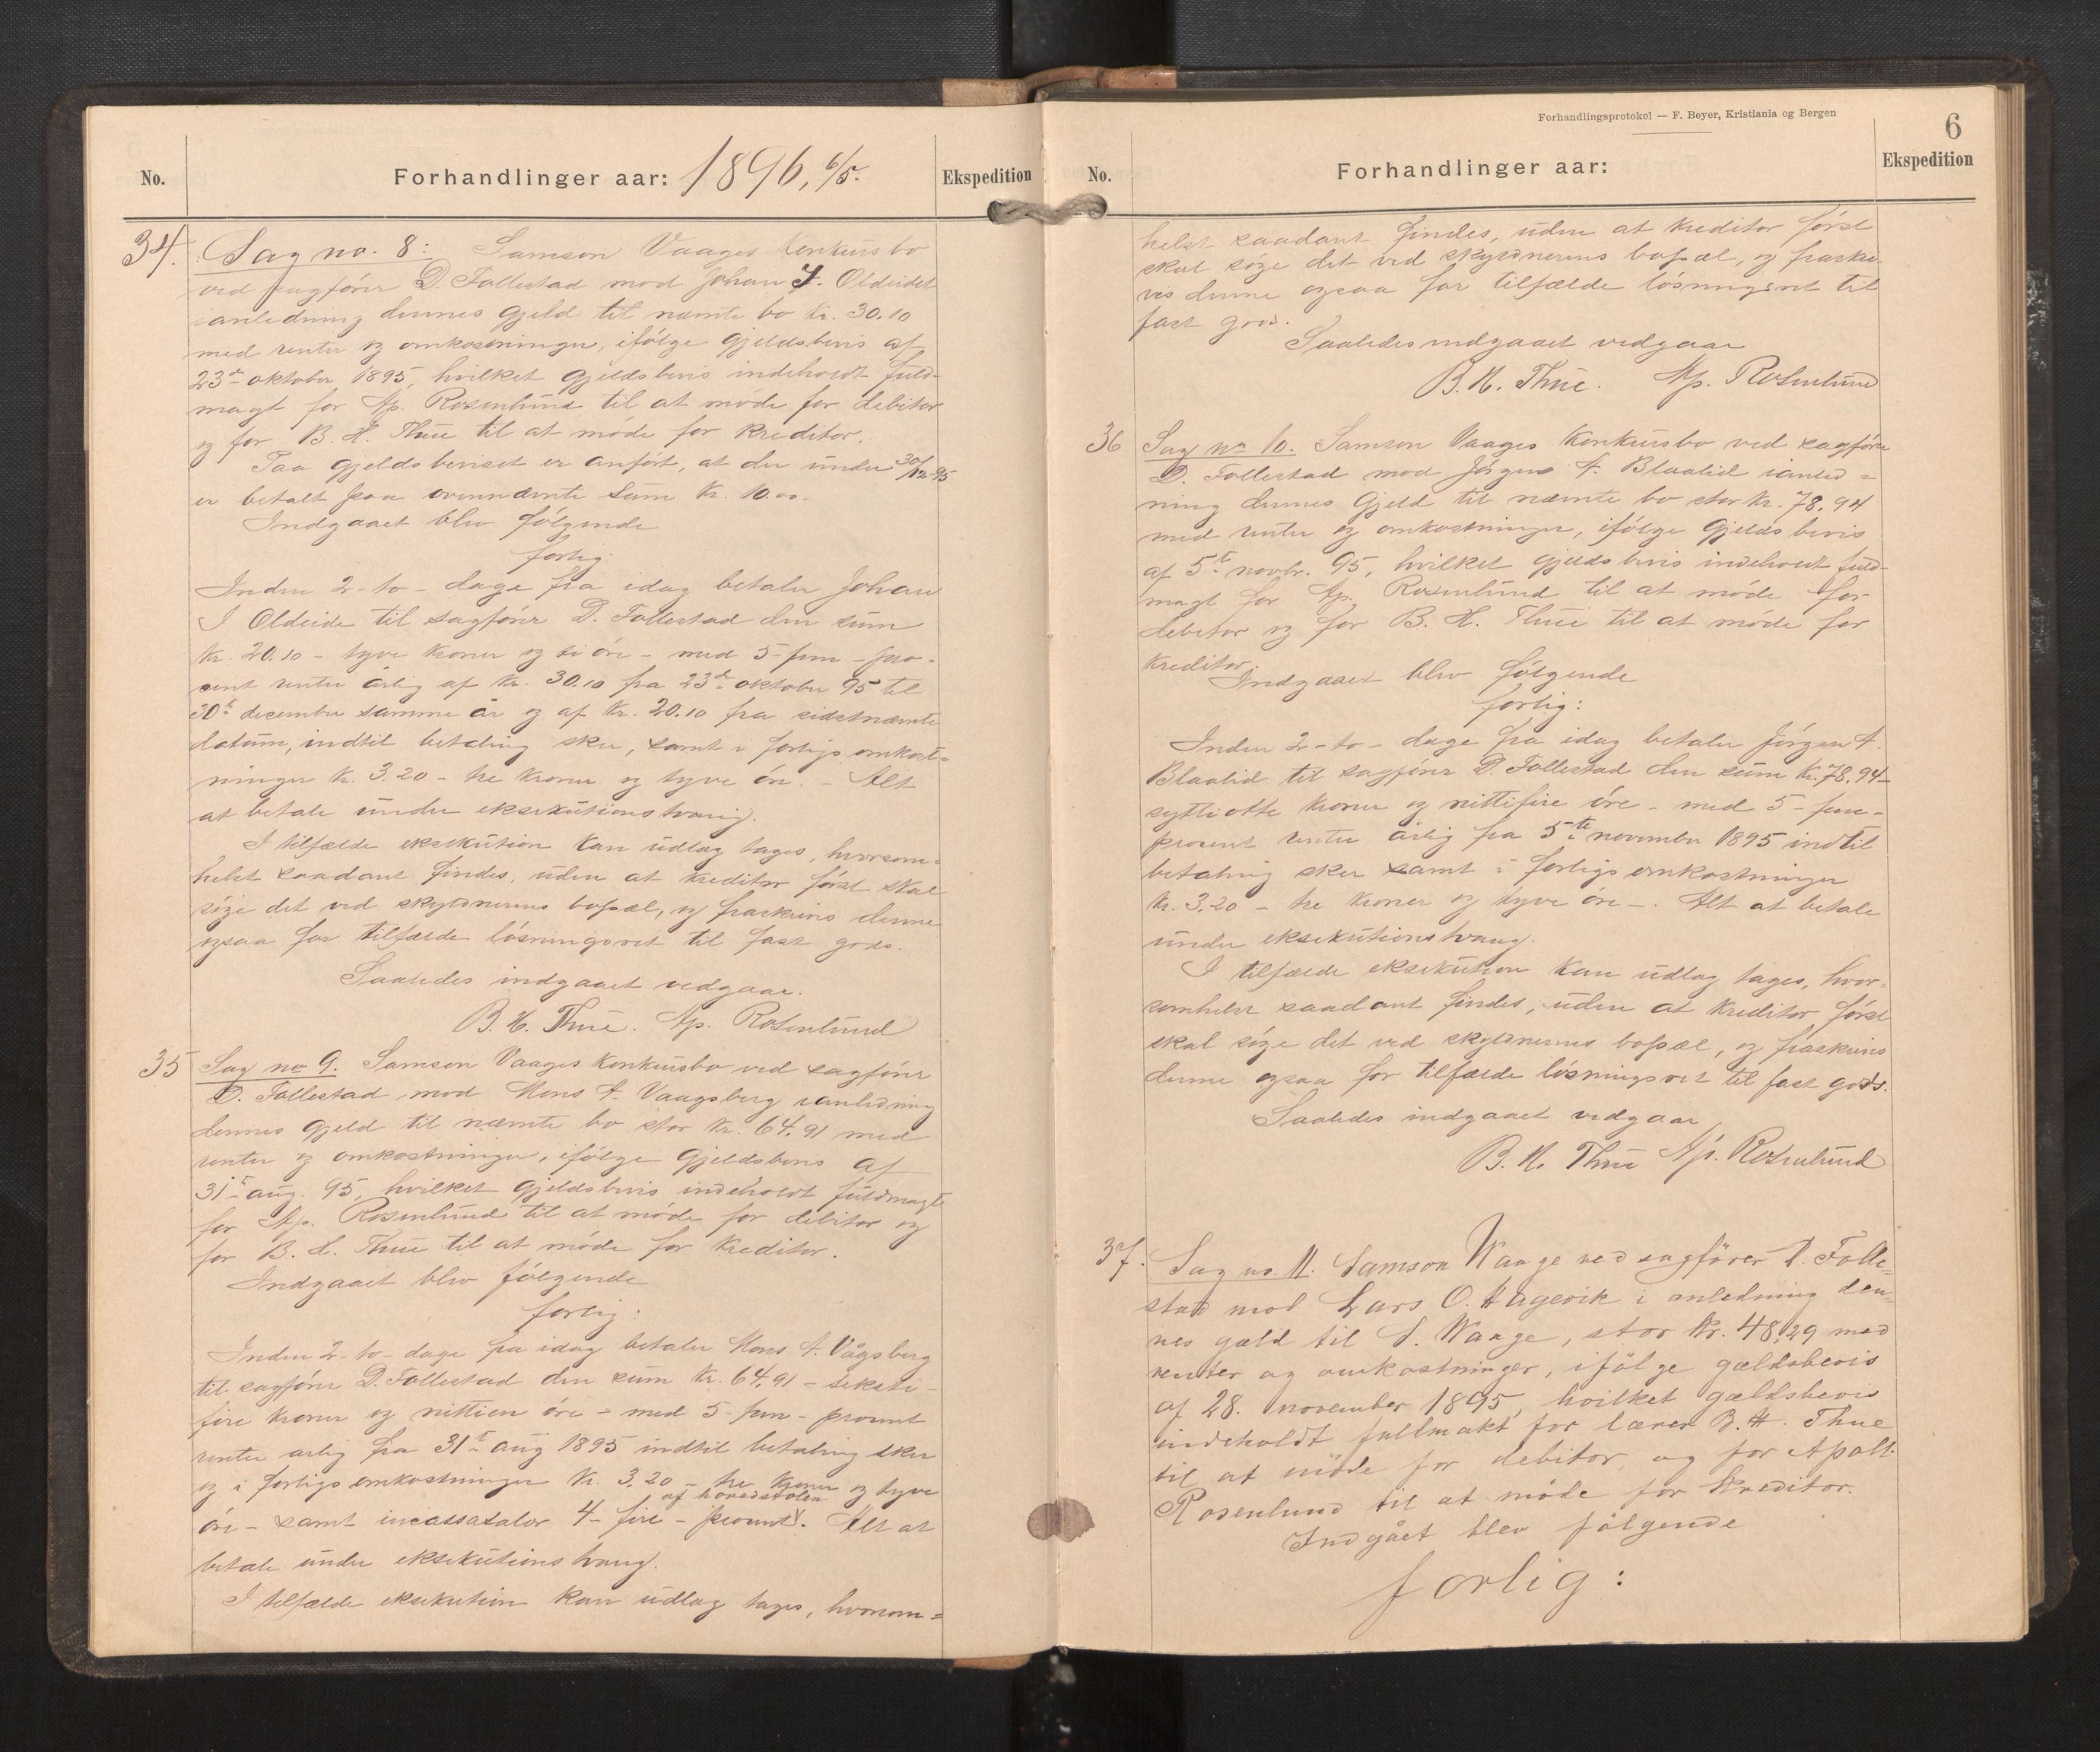 No.
Forhandlinger aar: 1896, 6/5.
Ekspedition
34.
Sag no. 8: Samson Vaages Konkursbo
ved sagfórer D. Follestad mod Johan J. Oldeidet
ianledning dennes gjeld til nævnte bo Kr. 30.10
med renter og omkostninger, ifólge gjeldsbevis af
23de oktober 1895, hvilket gjeldsbevis indeholdt fuld-
magt for Ap. Rosenlund til at móde for debitor
og for B. H. Thue til at móde for Kreditor.
Paa gjeldsbeviset er anfórt, at der under 30/12-95
er betalt paa ovennævnte sum Kr. 10.00.
Indgaaet blev fólgende
forlig:
Inden 2-to- dage fra idag betaler Johan
J Oldeide til sagfórer D. Follestad den sum
Kr. 20.10 - tyve Kroner og ti óre - med 5-fem-pro-
cent renter årlig af Kr. 30.10 fra 23de oktober 95 til
30te december samme år og af Kr. 20.10 fra sidstnævnte
datum, indtil betaling sker, samt i forligs omkost-
ninger Kr. 3.20 - tre Kroner og tyve óre. - Alt
at betale under eksekutionstvang.
I tilfælde eksekution kan udlæg tages, hvorsom-
helst saadant findes, uden at Kreditor fórst skal
sóge det ved skyldnerens bopæl, og fraskrives denne
ogsaa for tilfælde lósningsret til fast gods.
Saaledes indgaaet vedgaar.
B. H. Thue. Ap. Rosenlund
35
Sag no 9. Samson Vaages Konkursbo ved sagfórer
D. Follestad mod Mons A. Vaagsberg ianledning
dennes gjeld til nævnte bo stor Kr. 64,91 med
renter og omkostninger, ifólge gjeldsbevis af
31te aug. 95, hvilket gjeldsbevis indeholdt fuldmagt
for Ap. Rosenlund til at móde for debitor og
for B. H. Thue til at móde for Kreditor.
Indgaaet blev fólgende
forlig:
Inden 2-to- dage fra idag betaler Mons A. Vågsberg
til sagfórer D. Follestad den sum Kr. 64,91 - seksti-
fire kroner og nittien óre - med 5-fem-procent
renter årlig fra 31te aug 1895 indtil betaling sker
og i forligs omkostninger Kr. 3,20 - tre Kroner og tyve
af hovedstolen
óre - samt incassasalær 4 - fire - procent. Alt at
betale under eksekutionstvang.
I tilfælde eksekution kan udlæg tages, hvorsom-
Forhandlingsprotokol — F. Beyer, Kristiania og Bergen
6
No.
Forhandlinger aar:
Ekspedition
helst saadant findes, uden at Kreditor fórst
skal sóge det ved skyldnerens bopæl, og fraskri-
ves denne ogsaa for tilfælde lósningsret til
fast gods.
Saaledes indgaaet vedgaar
B. H. Thue. Ap. Rosenlund
36
Sag no 10. Samson Vaages Konkursbo ved sagfórer
D. Follestad mod Jórgen A. Blaalid ianled-
ning dennes gjeld til nævnte bo stor Kr. 78,94
med renter og omkostninger, ifólge gjeldsbevis
af 5te novbr. 95, hvilket gjeldsbevis indeholdt fuld-
magt for Ap. Rosenlund til at móde for
debitor og for B. H. Thue til at móde for
Kreditor.
Indgaaet blev fólgende
forlig:
Inden 2-to- dage fra idag betaler Jórgen A.
Blaalid til sagfórer D. Follestad den sum Kr. 78,94-
sytti otte kroner og nittifire óre - med 5-fem-
procent renter årlig fra 5te november 1895 indtil
betaling sker samt i forligs omkostninger
Kr. 3,20 - tre Kroner og tyve óre -. Alt at betale
under eksekutionstvang.
I tilfælde eksekution kan udlæg tages, hvor-
somhelst saadant findes, uden at Kreditor fórst
skal sóge det ved skyldnerens bopæl, og fraskrives
denne ogsaa for tilfælde lósningsret til fast gods.
Saaledes indgaaet vedgaar
B. H. Thue Ap. Rosenlund
37.
Sag no. 11. Samson Waage ved sagfører D. Folle-
stad mod Lars O. Hagevik i anledning den-
nes gæld til S. Waage, stor Kr. 48,29 med
renter og omkostninger, ifölge gældsbevis
af 28. november 1895, hvilket gældsbevis
indeholdt fullmakt for lærer B. H. Thue
til at möde for debitor, og for Apoll.
Rosenlund til at möde for Kreditor.
Indgået blev fölgende
forlig: